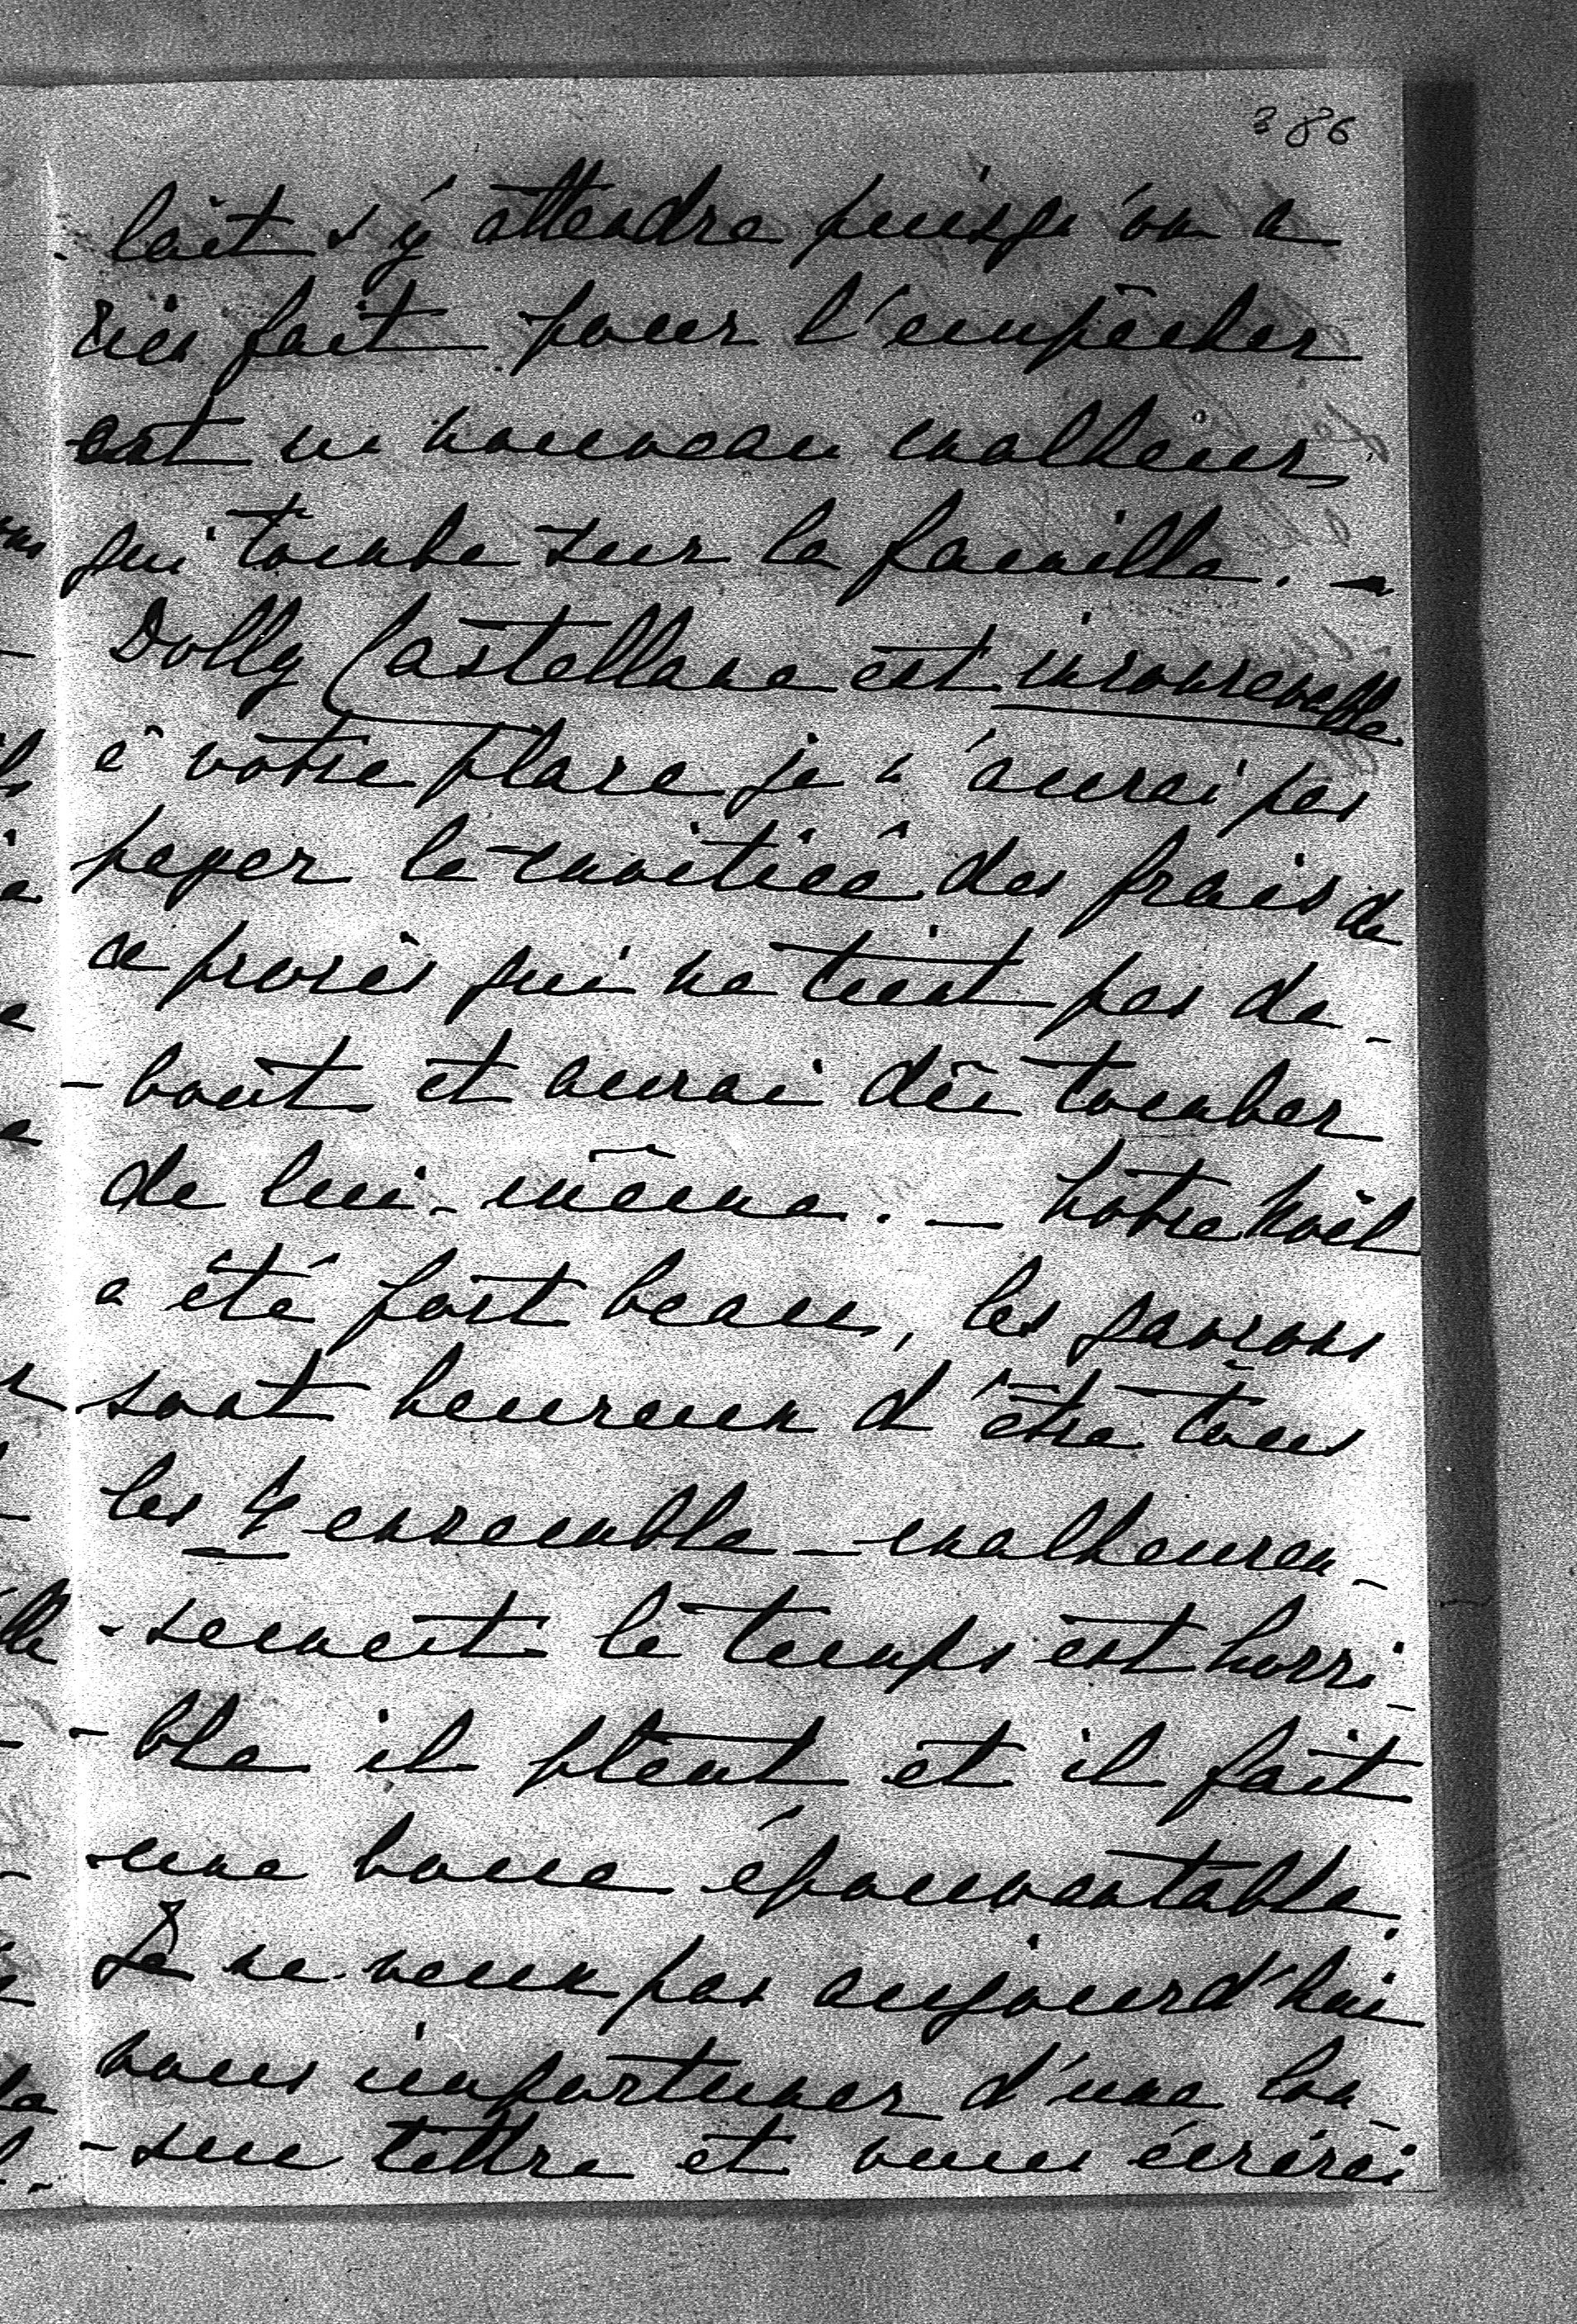 386
-lait s'y attendre puisqu'on a
rien fait pour l'empêcher
est un nouveau malheur
qui tombe sur la famille. —
Dolly Castellane est inconcevable
à votre place je n'aurai pas
payer la moitiée des frais de
ce procès qui ne tient pas de-
-bout et aurai dû tomber
de lui-même. — Notre Noël
a été fort beau, les garçons
sont heureux d'être tous
les 4 ensemble — malheureu-
-sement le temps est horri-
-ble il pleut et il fait
une boue épouvantable.
Je ne veux pas aujourd'hui
vous importuner d'une lon-
-gue lettre et vous écrirai